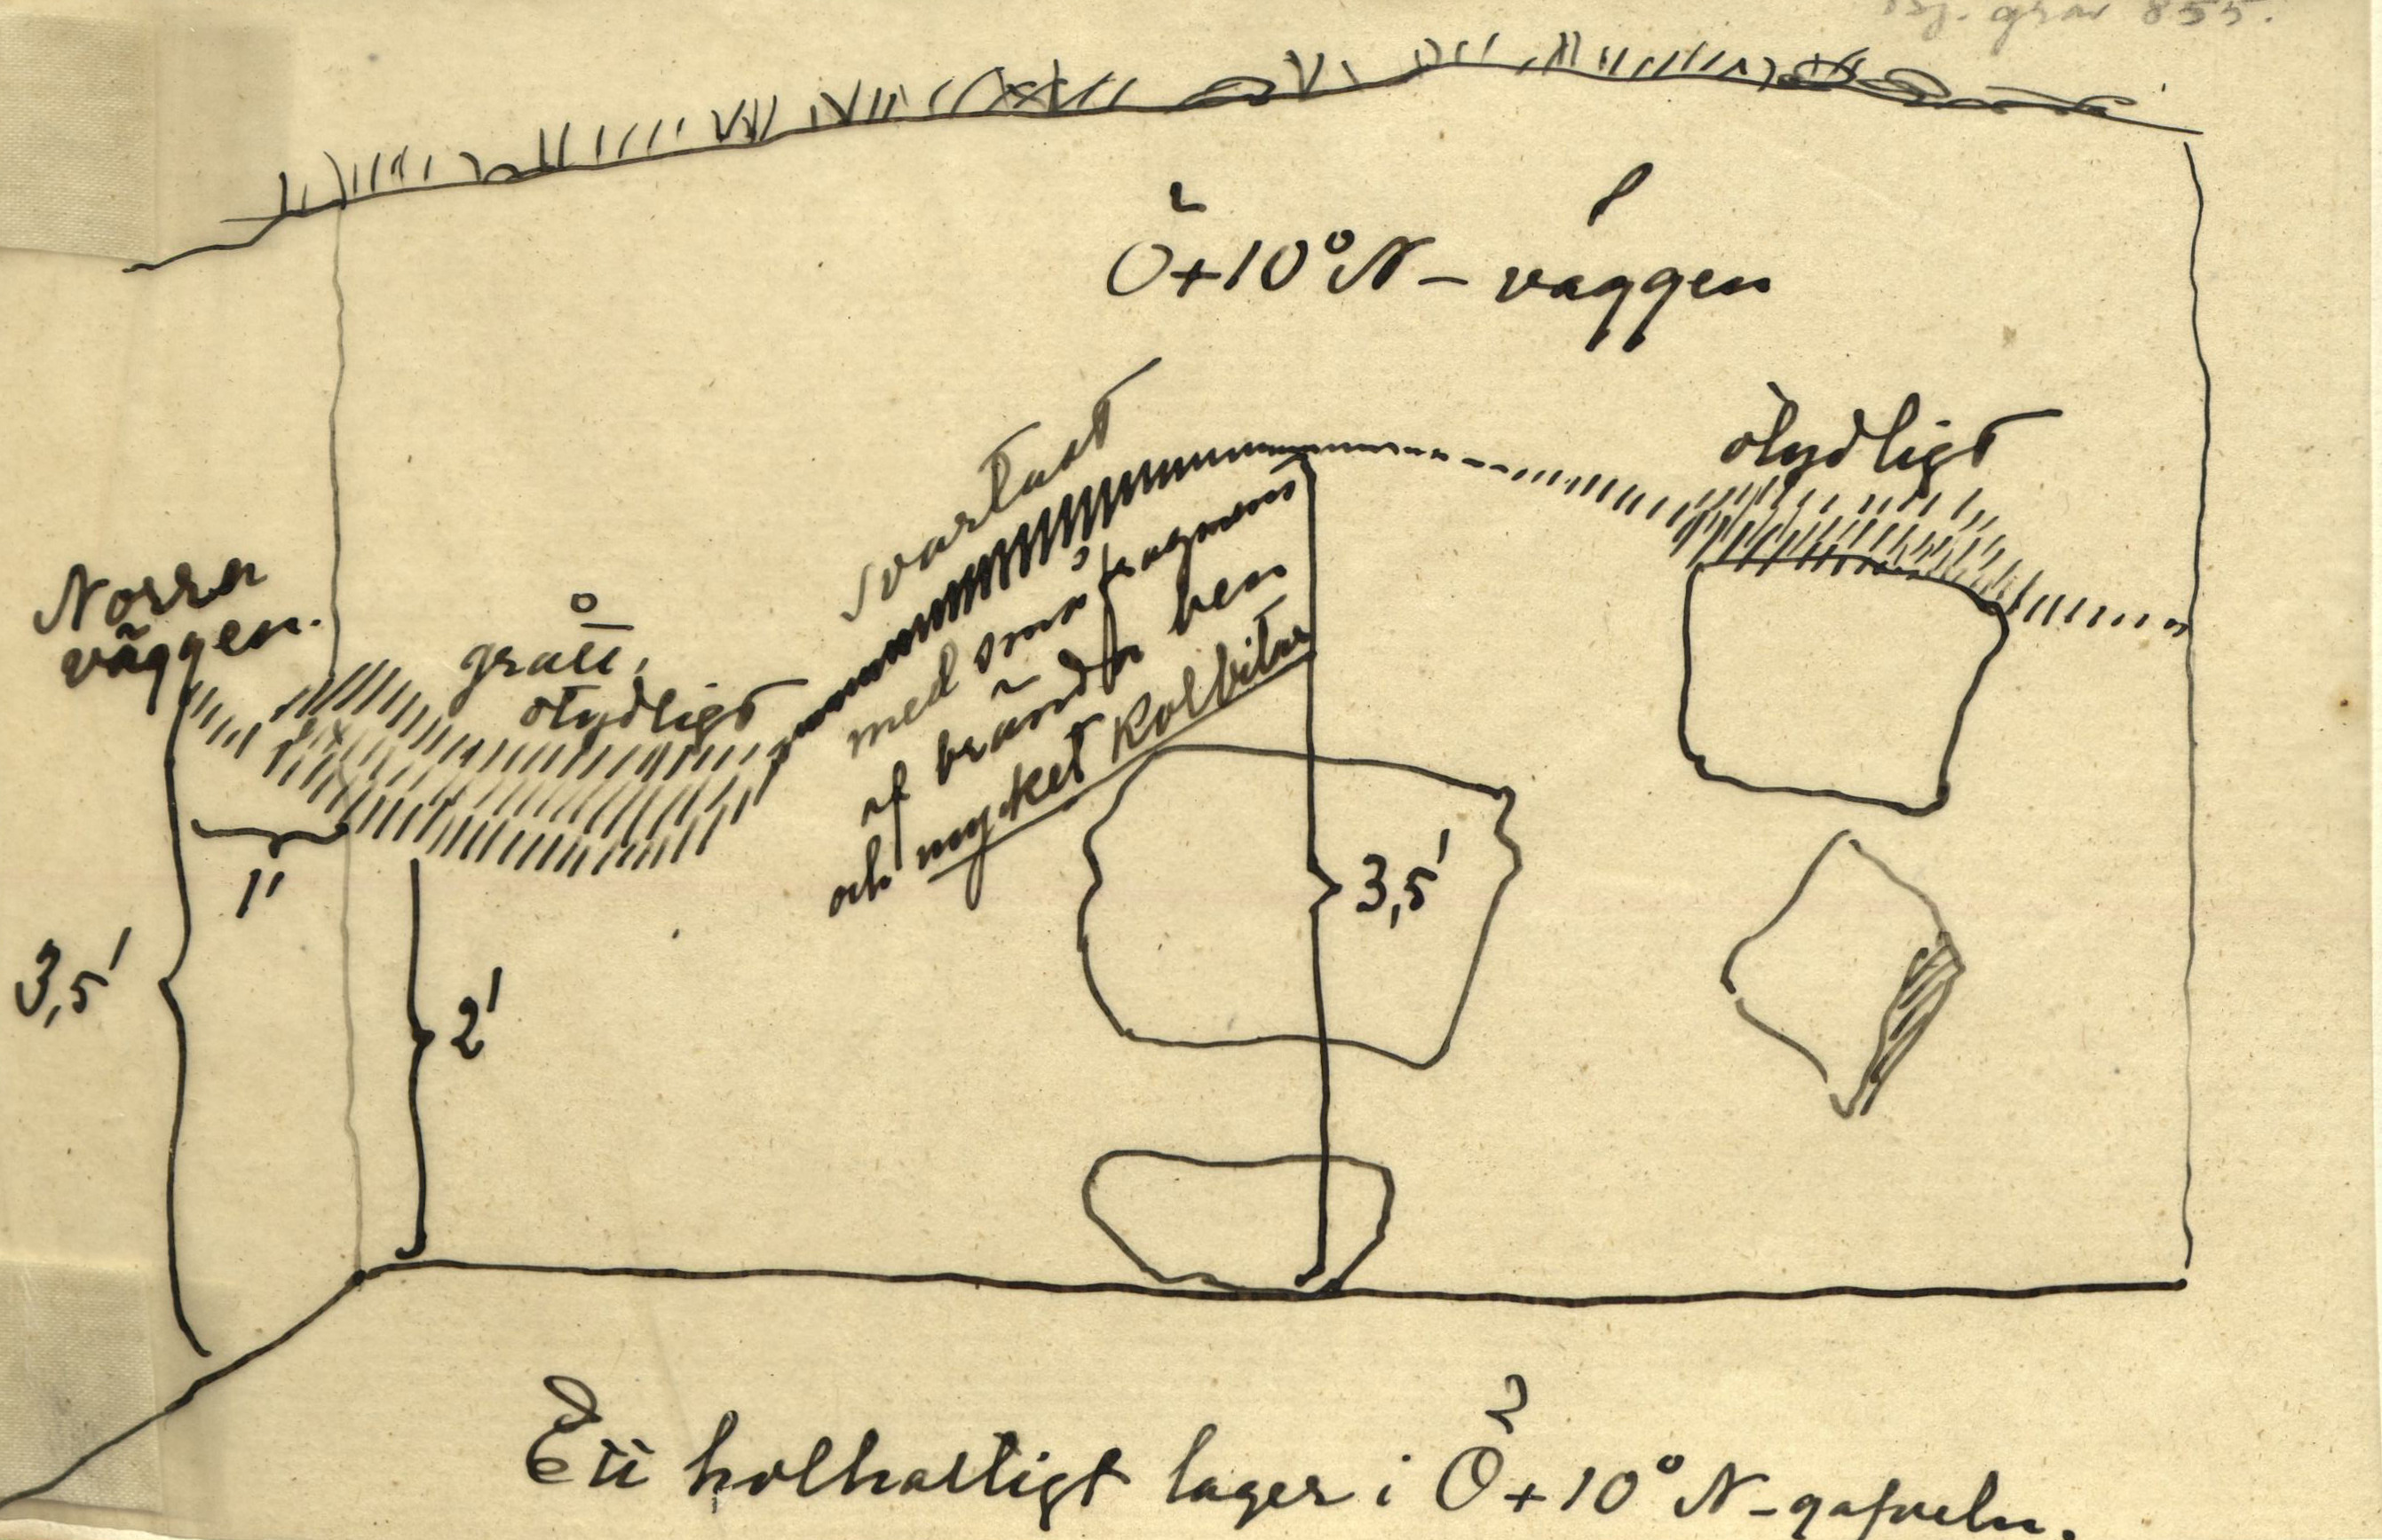 Bj. grav 855.
Ö+10°N-väggen
svartast
otydligt
Norra
väggen.
grått,
otydligt
med små fragment
af brända ben
och mycket kolbitar
1'
3,5'
2'
3,5'
Ett kolhaltigt lager i Ö+10°N-gafveln.